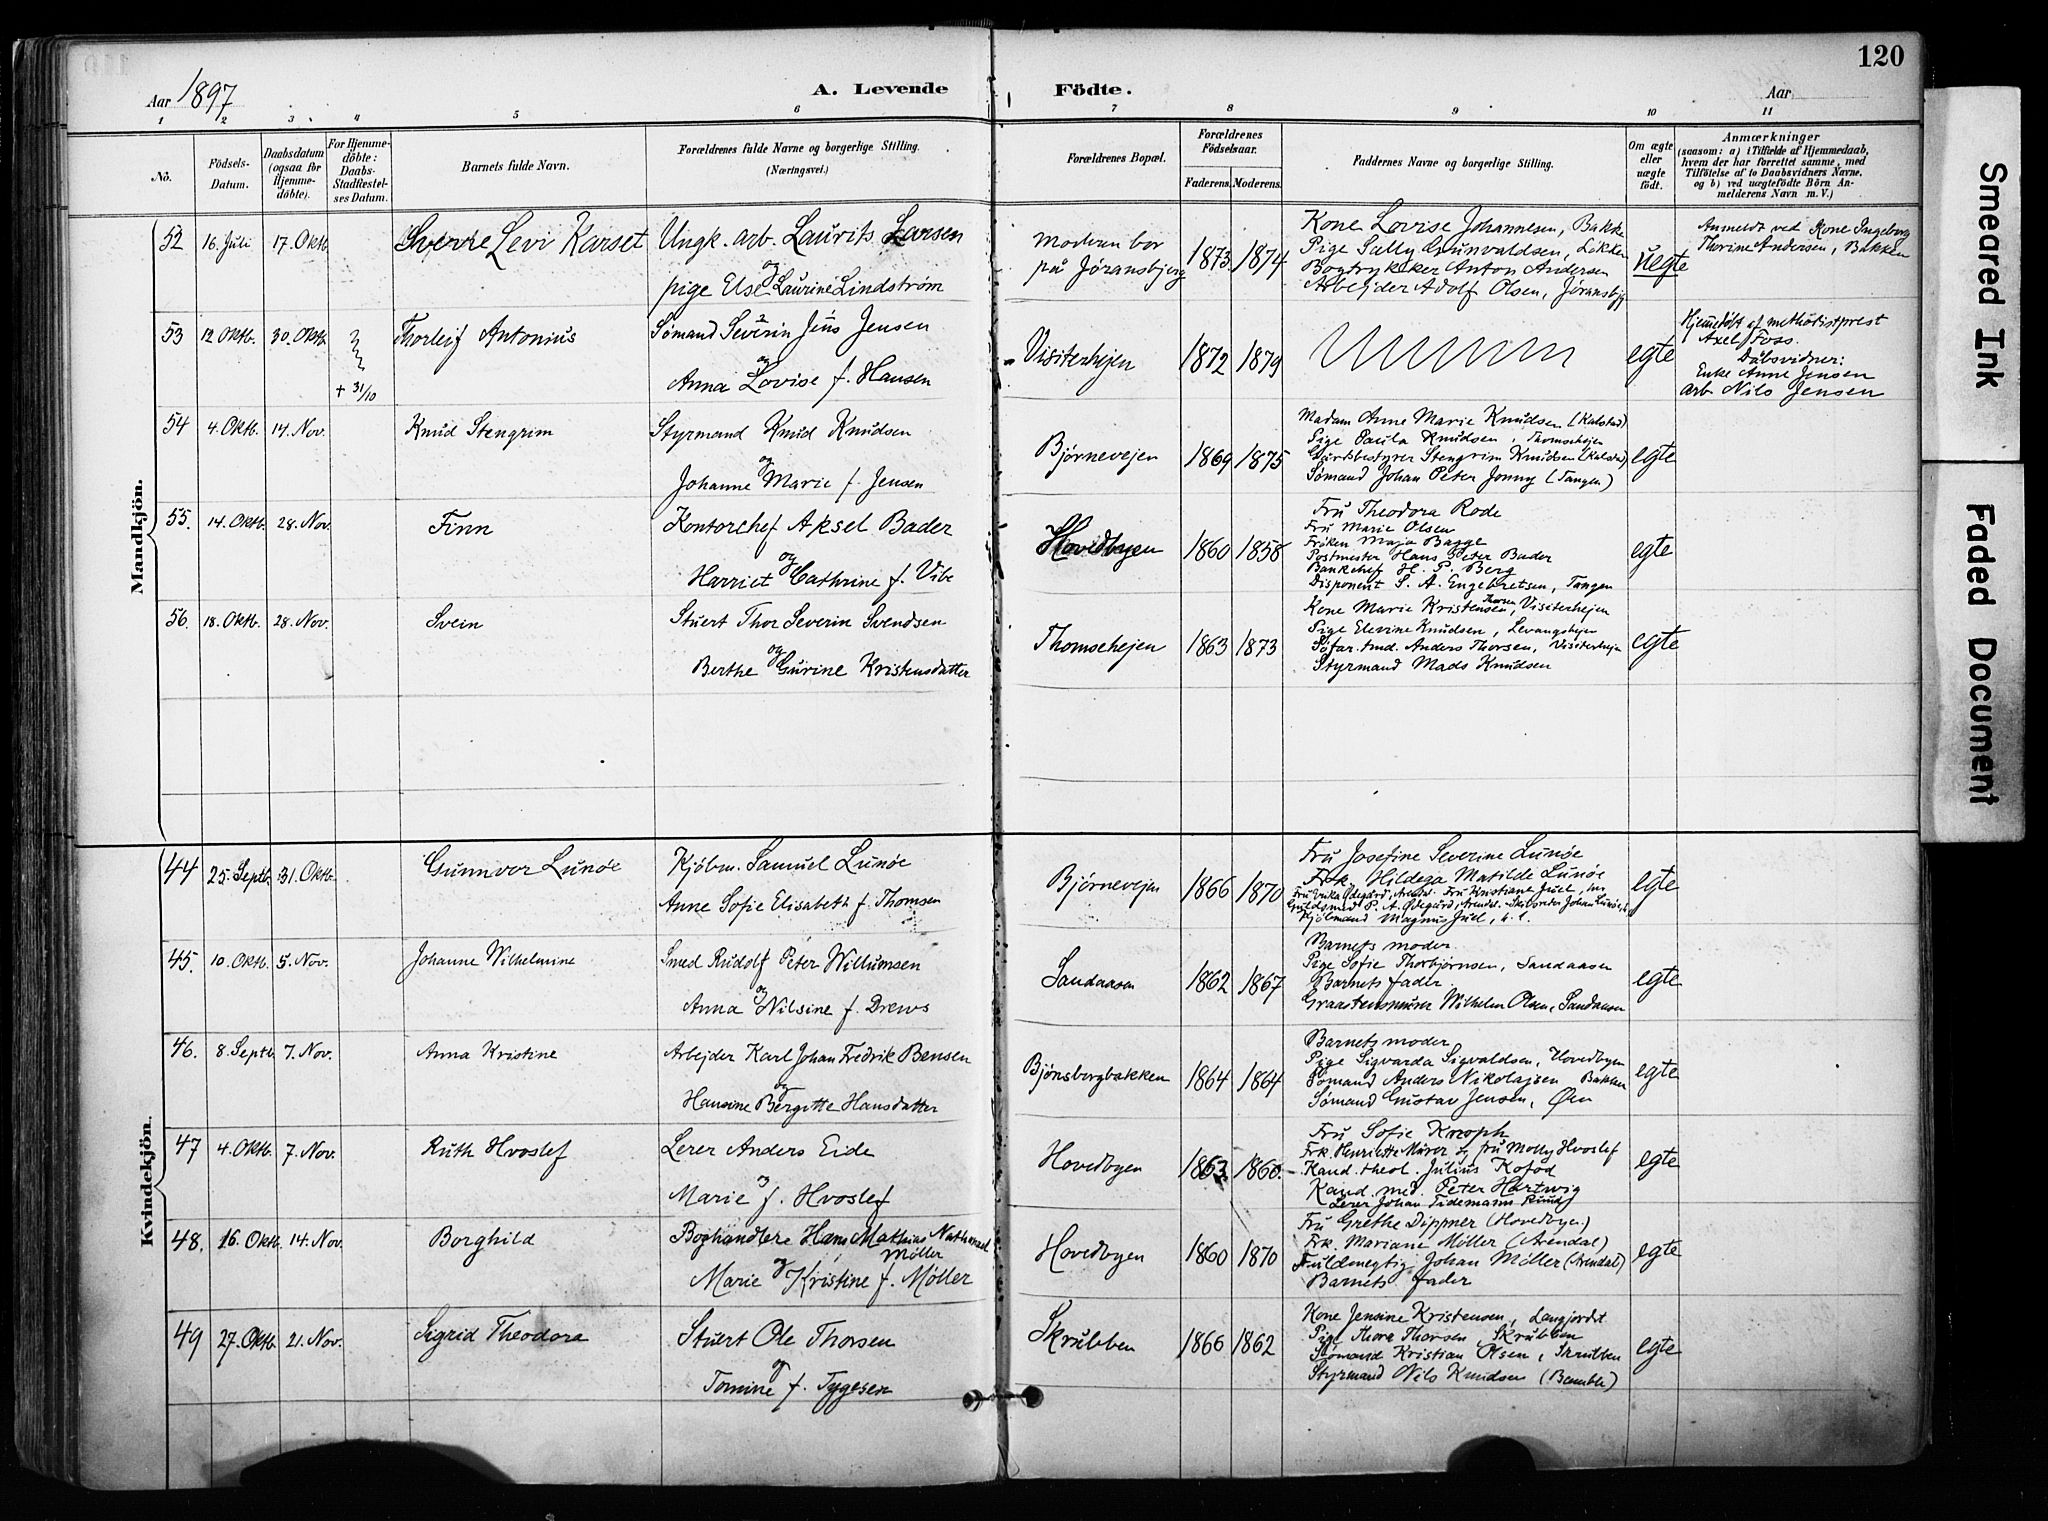 120
Aar 1897
A. Levende Födte.
Aar
1 2 3 4 5 6 7 8 9 10 11
No.
Födsels-Datum.
Daabsdatum (ogsaa for Hjemme-döbte).
For Hjemme-döbte: Daabs-Stadfæstel-ses Datum.
Barnets fulde Navn.
Forældrenes fulde Navne og borgerlige Stilling. (Næringsvei.)
Forældrenes Bopæl.
Forældrenes Födselsaar.
Faderens. Moderens.
Faddernes Navne og borgerlige Stilling.
Om ægte eller uægte født.
Anmærkninger
(saasom: a) i Tilfælde af Hjemmedaab,
hvem der har forrettet samme, med
Tilföielse af to Daabsvidners Navne.
og b) ved uægtefödte Börn An-
melderens Navn m. V.)
Mandkjön.
52 16. Juli 17. Oktb. Sverre Levi Karset
Ungk. arb. Laurits Larsen
og
pige Else Laurine Lindstrøm
Modren bor
på Jøransbjerg
1873. 1874
Kone Lovise Johannesen, Bakke
Pige Sally Grunvaldsen, Løkken
Bogtrykker Anton Andersen
Arbejder Adolf Olsen, Jøransbjg
uegte
Anmeldt ved Kone Ingeborg
Thorine Andersen, Bakken
53 12 Oktb. 30. Oktb.
+ 31/10
Thorleif Antonius
Sømand Severin Jens Jensen
og
Anna Lovise f. Hansen
Visiterhejen
1872 1879
egte
Hjemmedøbt af methodistprest
Axel Foss.
Dåbsvidner:
Enke Anne Jensen
arb. Nils Jensen
54 4. Oktb. 14. Nov. Knud Stengrim
Styrmand Knud Knudsen
og
Johanne Marie f. Jensen
Bjørnevejen
1869 1875
Madam Anne Marie Knudsen (Kalstad)
Pige Paula Knudsen, Thomsehejen
Gårdsbestyrer Stengrim Knudsen (Kalstad)
Sømand Johan Peter Jonny (Tangen)
egte
55. 14. Oktb. 28. Nov. Finn
Kontorchef Aksel Bader
og
Harriet Cathrine f. Vibe
Hovedbyen
1860 1858
Fru Theodora Rode
Fru Marie Olsen
Frøken Maja Bagge
Postmester Hans Peter Bader
Bankchef H. P. Berg
Disponent S. A. Engebretsen, Tangen
egte
56. 18. Oktb. 28. Nov. Svein
Stuert Thor Severin Svendsen
og
Berthe Gurine Kristensdatter
Thomsehejen
1863 1873
Kone Marie Kristensen Thorsen, Visiterhejen
Pige Elevine Knudsen, Levangshejen
Søfar.tmd. Anders Thorsen, Visiterhejen
Styrmand Mads Knudsen
egte
Kvindekjön.
44 25. Septb. 31. Oktb. Gunnvor Lunøe
Kjøbm. Samuel Lunøe
Anne Sofie Elisabeth f. Thomsen
Bjørnevejen
1866 1870
Fru Josefine Severine Lunøe
Frk. Hildega Matilde Lunøe
Kjøbmand Magnus Juel, h. t.
egte
45. 10. Oktb. 5. Nov. Johanne Wilhelmine
Smed Rudolf Peter Willumsen
og
Anna Nilsine f. Drews
Sandaasen
1862 1867
Barnets moder
Pige Sofie Thorbjørnsen, Sandaasen
Barnets fader
Graastensmurer Wilhelm Olsen, Sandaasen
egte
46. 8. Septb. 7. Nov. Anna Kristine
Arbejder Karl Johan Fredrik Bensen
og
Hansine Bergitte Hansdatter
Bjønsbergbakken
1864 1864
Barnets moder
Pige Sigvarda Sigvaldsen, Hovedbyen
Sømand Anders Nikolajsen Bakken
Sømand Gustav Jensen, Øen
egte
47 4. Oktb. 7. Nov. Ruth Hvoslef
Lerer Anders Eide
og
Marie f. Hvoslef
Hovedbyen
1863 1860.
Fru Sofie Knoph
Frk. Henriette Mürer og fru Molly Hvoslef
Kand. theol. Julius Kofod
Kand. med. Peter Hartwig
Lerer Johan Tidemann Ruud
egte
48. 16. Oktb. 14. Nov. Borghild
Boghandlere Hans Mathias Nathanael
Møller
og
Marie Kristine f. Møller
Hovedbyen
1860 1870
Fru Grethe Dippner (Hovedbyen)
Frk. Mariane Møller (Arendal)
Fuldmegtig Johan Møller (Arendal)
Barnets fader
egte
49 27. Oktb. 21. Nov. Sigrid Theodora
Stuert Ole Thorsen
og
Tomine f. Tygesen
Skrubben
1866 1862
Kone Jensine Kristensen, Langjordet
Pige Thora Thorsen, Skrubben
Sømand Kristian Olsen, Skrubben
Styrmand Nils Knudsen (Bamble)
egte
Smeared Ink
Faded Document